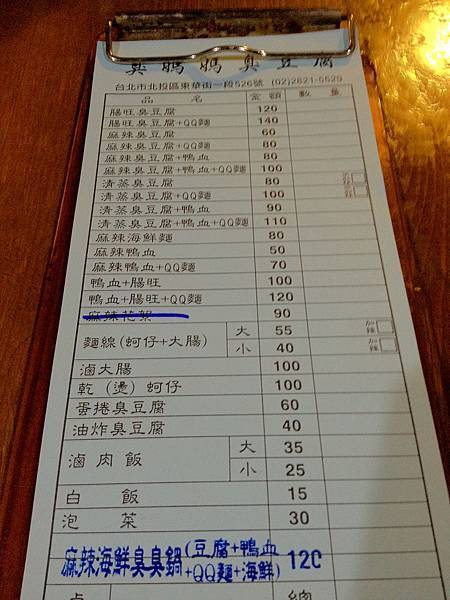 臭媽媽臭豆腐
台北市北投區東華街一段526號 (02)2821-5529
品名 金額 數量
腸旺臭豆腐 120
腸旺臭豆腐+QQ麵 140
麻辣臭豆腐 60
麻辣臭豆腐+QQ麵 80
麻辣臭豆腐+鴨血 80
麻辣臭豆腐+鴨血+QQ麵 100
清蒸臭豆腐 80 加辣
清蒸臭豆腐+QQ麵 100 加辣
清蒸臭豆腐+鴨血 90
清蒸臭豆腐+鴨血+QQ麵 110
麻辣海鮮麵 80
麻辣鴨血 50
麻辣鴨血+QQ麵 70
鴨血+腸旺 100
鴨血+腸旺+QQ麵 120
麻辣花絮 90
麵線(蚵仔+大腸) 大 55 加辣
小 40 加辣
滷大腸 100
乾(燙)蚵仔 100
蛋捲臭豆腐 60
油炸臭豆腐 40
滷肉飯 大 35
小 25
白飯 15
泡菜 30
麻辣海鮮臭臭鍋(豆腐+鴨血+QQ麵+海鮮) 120
桌 總